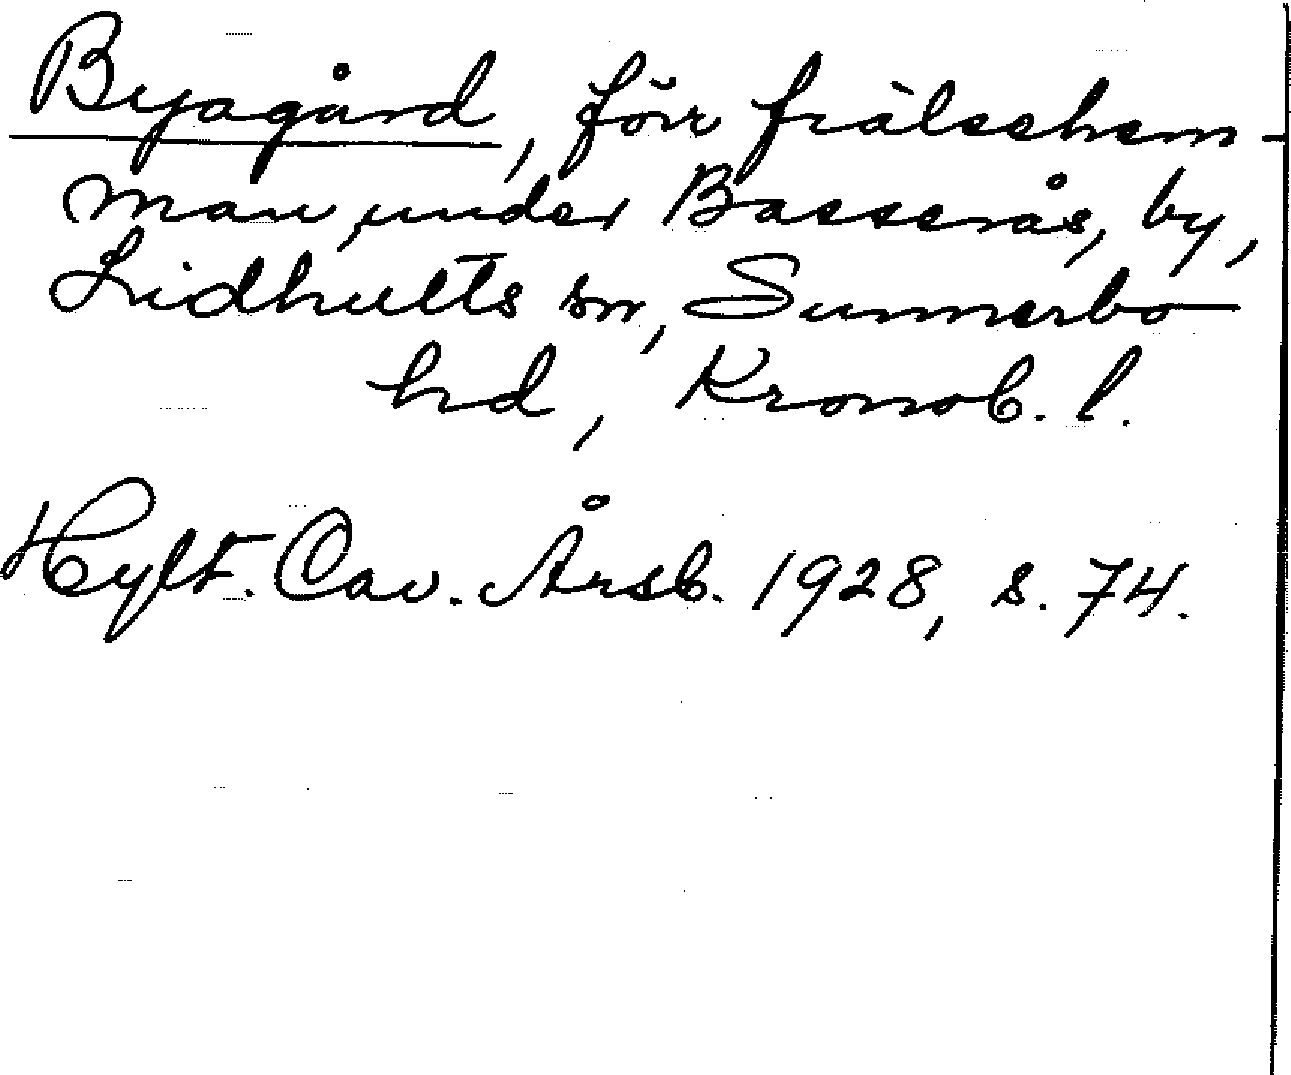 Byagård, förr frälsehem-
man, under Basserås, by,
Lidhults sn, Sunnerbo
hd, Kronob. l.
Hylt. Cav. Årsb. 1928, s. 74.